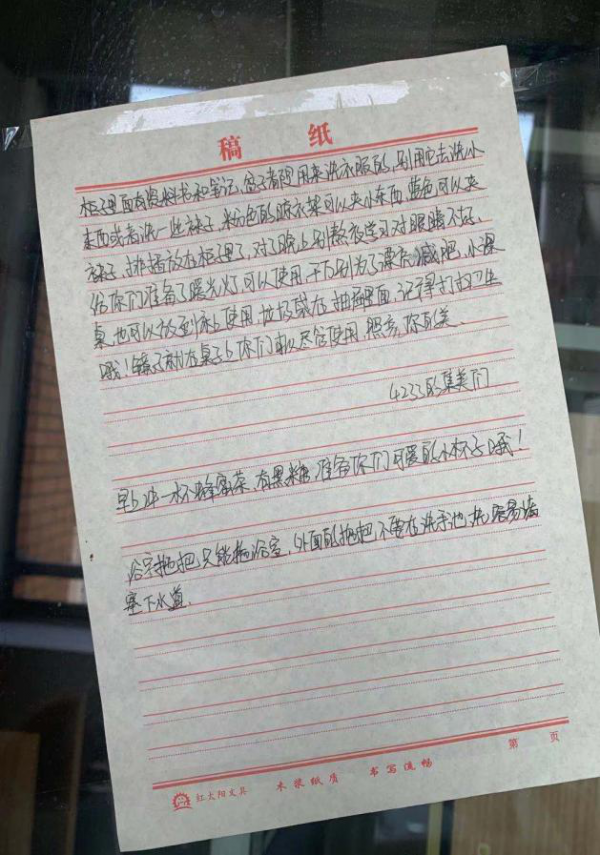 稿 纸
柜子里面有资料书和笔记,盆子都是用来洗衣服的,别用它去洗小
东西或者洗一些袜子,粉色的晾衣架可以夹小东西,蓝色可以夹
袜子,排插放在柜子里了,对了晚上别熬夜学习对眼睛不好,
给你们准备了曙光灯可以使用,千万别为了漂亮减肥,小课
桌也可以放到床上使用,垃圾袋在抽屉里面,记得打扫卫生
哦!镜子就在桌子上你们可以尽管使用,照亮你的美.
4233的集美们
早上冲一杯蜂蜜茶,有黑糖,准备你们可爱的小杯子哦!
浴室拖把只能拖浴室,外面的拖把不要在洗手池洗容易堵
塞下水道.
第 页
红太阳文具 木浆纸质 书写流畅